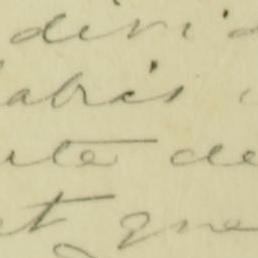 divi
abris
ute de
et que